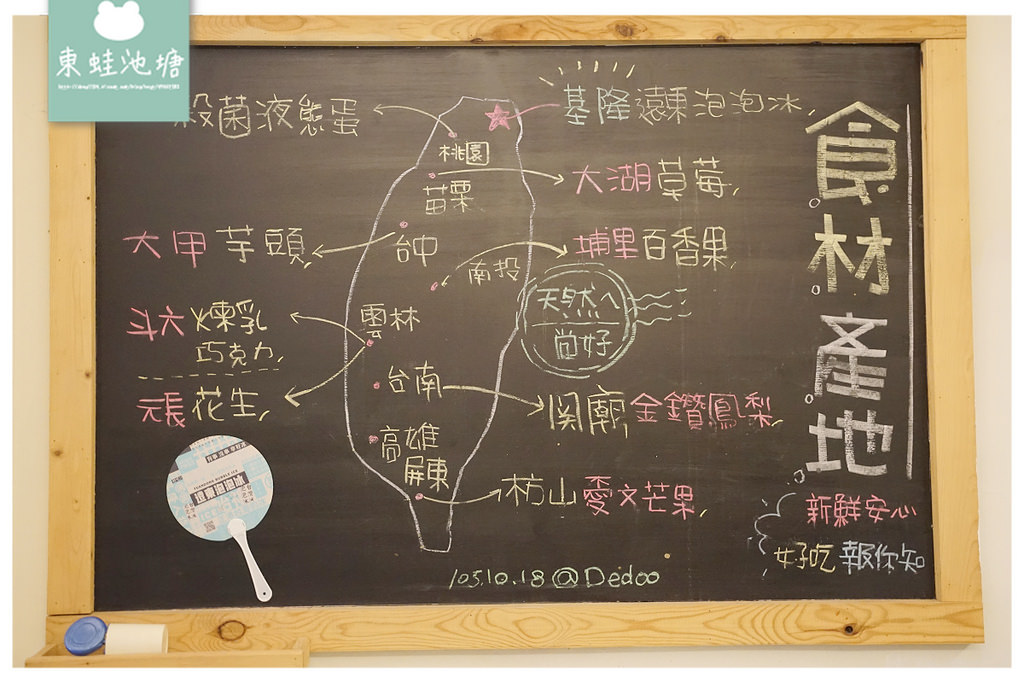 東蛙池塘
食材產地
殺菌液態蛋
基隆遠東泡泡冰
桃園
大湖草莓
苗栗
大甲芋頭
台中
埔里百香果
南投
天然ㄟ
尚好
斗六煉乳
巧克力
雲林
元長花生
台南
関廟金鑽鳳梨
高雄
屏東
枋山愛文芒果
新鮮安心
好吃報你知
103.10.18@Dedoo
遠東泡泡冰